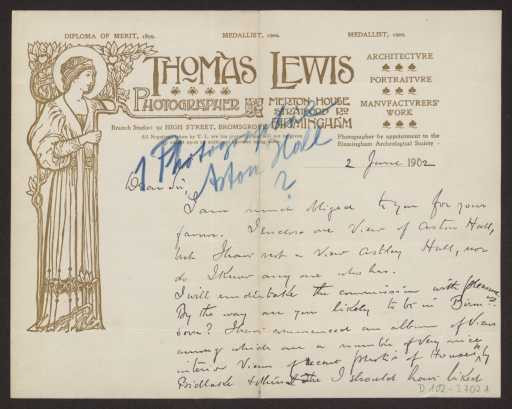 DIPLOMA OF MERIT, 1890. MEDALLIST, 1900. MEDALLIST, 1901.
THOMAS LEWIS
PHOTOGRAPHER
MERTON HOUSE
STRATFORD RD
BIRMINGHAM
ARCHITECTVRE
PORTRAITVRE
MANVFACTVRERS'
WORK
Branch Studio: 92 HIGH STREET, BROMSGROVE
Photographer by appointment to the
Birmingham Archæological Society
1 Photograph
Aston Hall
?
2 June 1902
Dear Sir,
I am much obliged to you for your
favor. I enclose one View of Aston Hall,
but I have not a View Astley Hall, nor
do I know any one who has.
I will undertake the commission with pleasure
By the way are you likely to be in Birm
soon? I have commenced an album of Views
among which are a number of very nice
interior Views & recent photos of Houses by
Bidlake & the I should have liked
D 102-2702 A